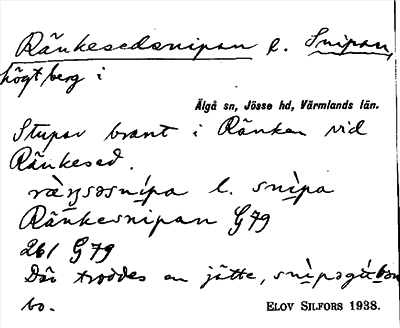 Ränkesedsnipan l. Snipan,
högt berg i
Älgå sn, Jösse hd, Värmlands län.
Stupar brant i Ränken vid
Ränkesed.
l. snìpa
Ränkesnipan G79
261 G79
Där troddes en jätte,
bo.
ELOV SILFORS 1938.